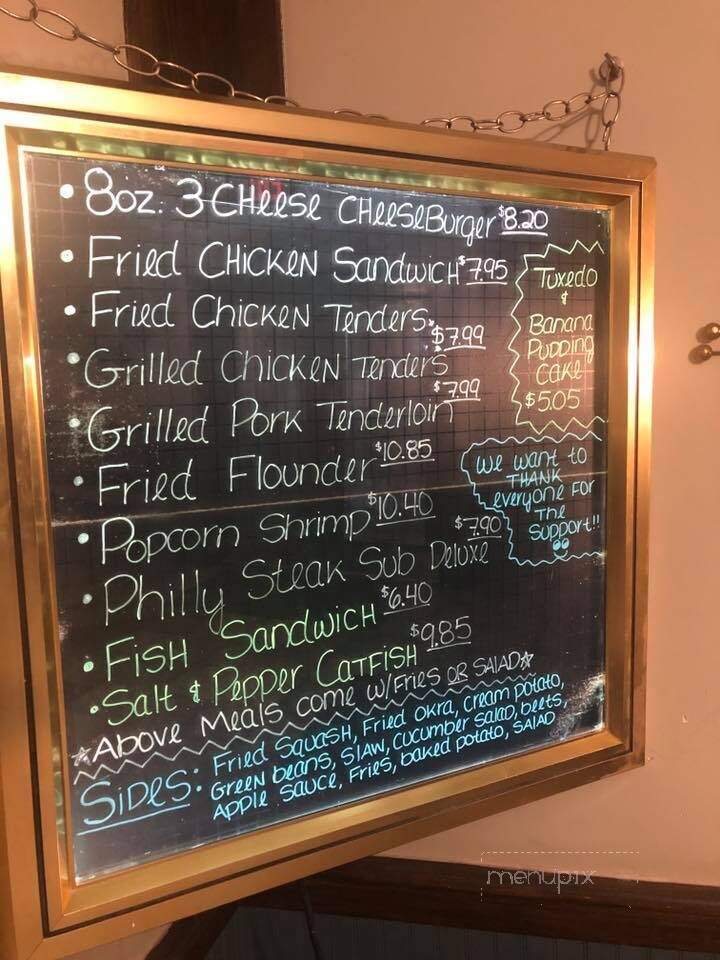 • 8oz. 3 Cheese CheeseBurger $8.20
• Fried Chicken Sandwich $7.95
• Fried Chicken Tenders $7.99
• Grilled Chicken Tenders $7.99
• Grilled Pork Tenderloin
• Fried Flounder $10.85
• Popcorn Shrimp $10.40
• Philly Steak Sub Deluxe $7.90
• Fish Sandwich $6.40
• Salt & Pepper Catfish $9.85
☆Above Meals come w/Fries OR SALAD☆
Sides: Fried Squash, Fried Okra, cream potato,
Green beans, Slaw, Cucumber Salad, beets,
Apple Sauce, Fries, baked potato, SALAD
Tuxedo
&
Banana
Pudding
Cake
$5.05
We want to
THANK
everyone For
The
Support!!
menupix